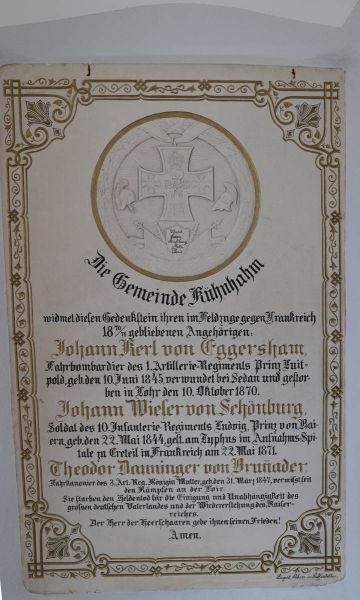 Die Gemeinde Kühnhahm
widmet diesen Gedenkstein ihren im Feldzuge gegen Frankreich
18 70/71 gebliebenen Angehörigen:
Johann Kerl von Eggersham,
Fahrbombardier des 1. Artillerie-Regiments Prinz Luit-
pold, geb. den 10. Juni 1845, verwundet bei Sedan und gestor-
ben in Lohr den 10. Oktober 1870.
Johann Wieser von Schönburg,
Soldat des 10. Infanterie-Regiments Ludwig, Prinz von Bai-
ern, geb. den 22. Mai 1844, gest. am Typhus im Aufnahms-Spi-
tale zu Creteil in Frankreich am 22. Mai 1871.
Theodor Danninger von Brunader;
Fahrkanonier des 3. Art.-Reg. Königin Mutter, geb. den 31. März 1847, vermißt seit
den Kämpfen an der Loir.
Sie starben den Heldentod für die Einigung und Unabhängigkeit des
großen deutschen Vaterlandes und der Wiedererstehung des Kaiser-
reiches.
Der Herr der Heerschaaren gebe ihnen seinen Frieden!
Amen.